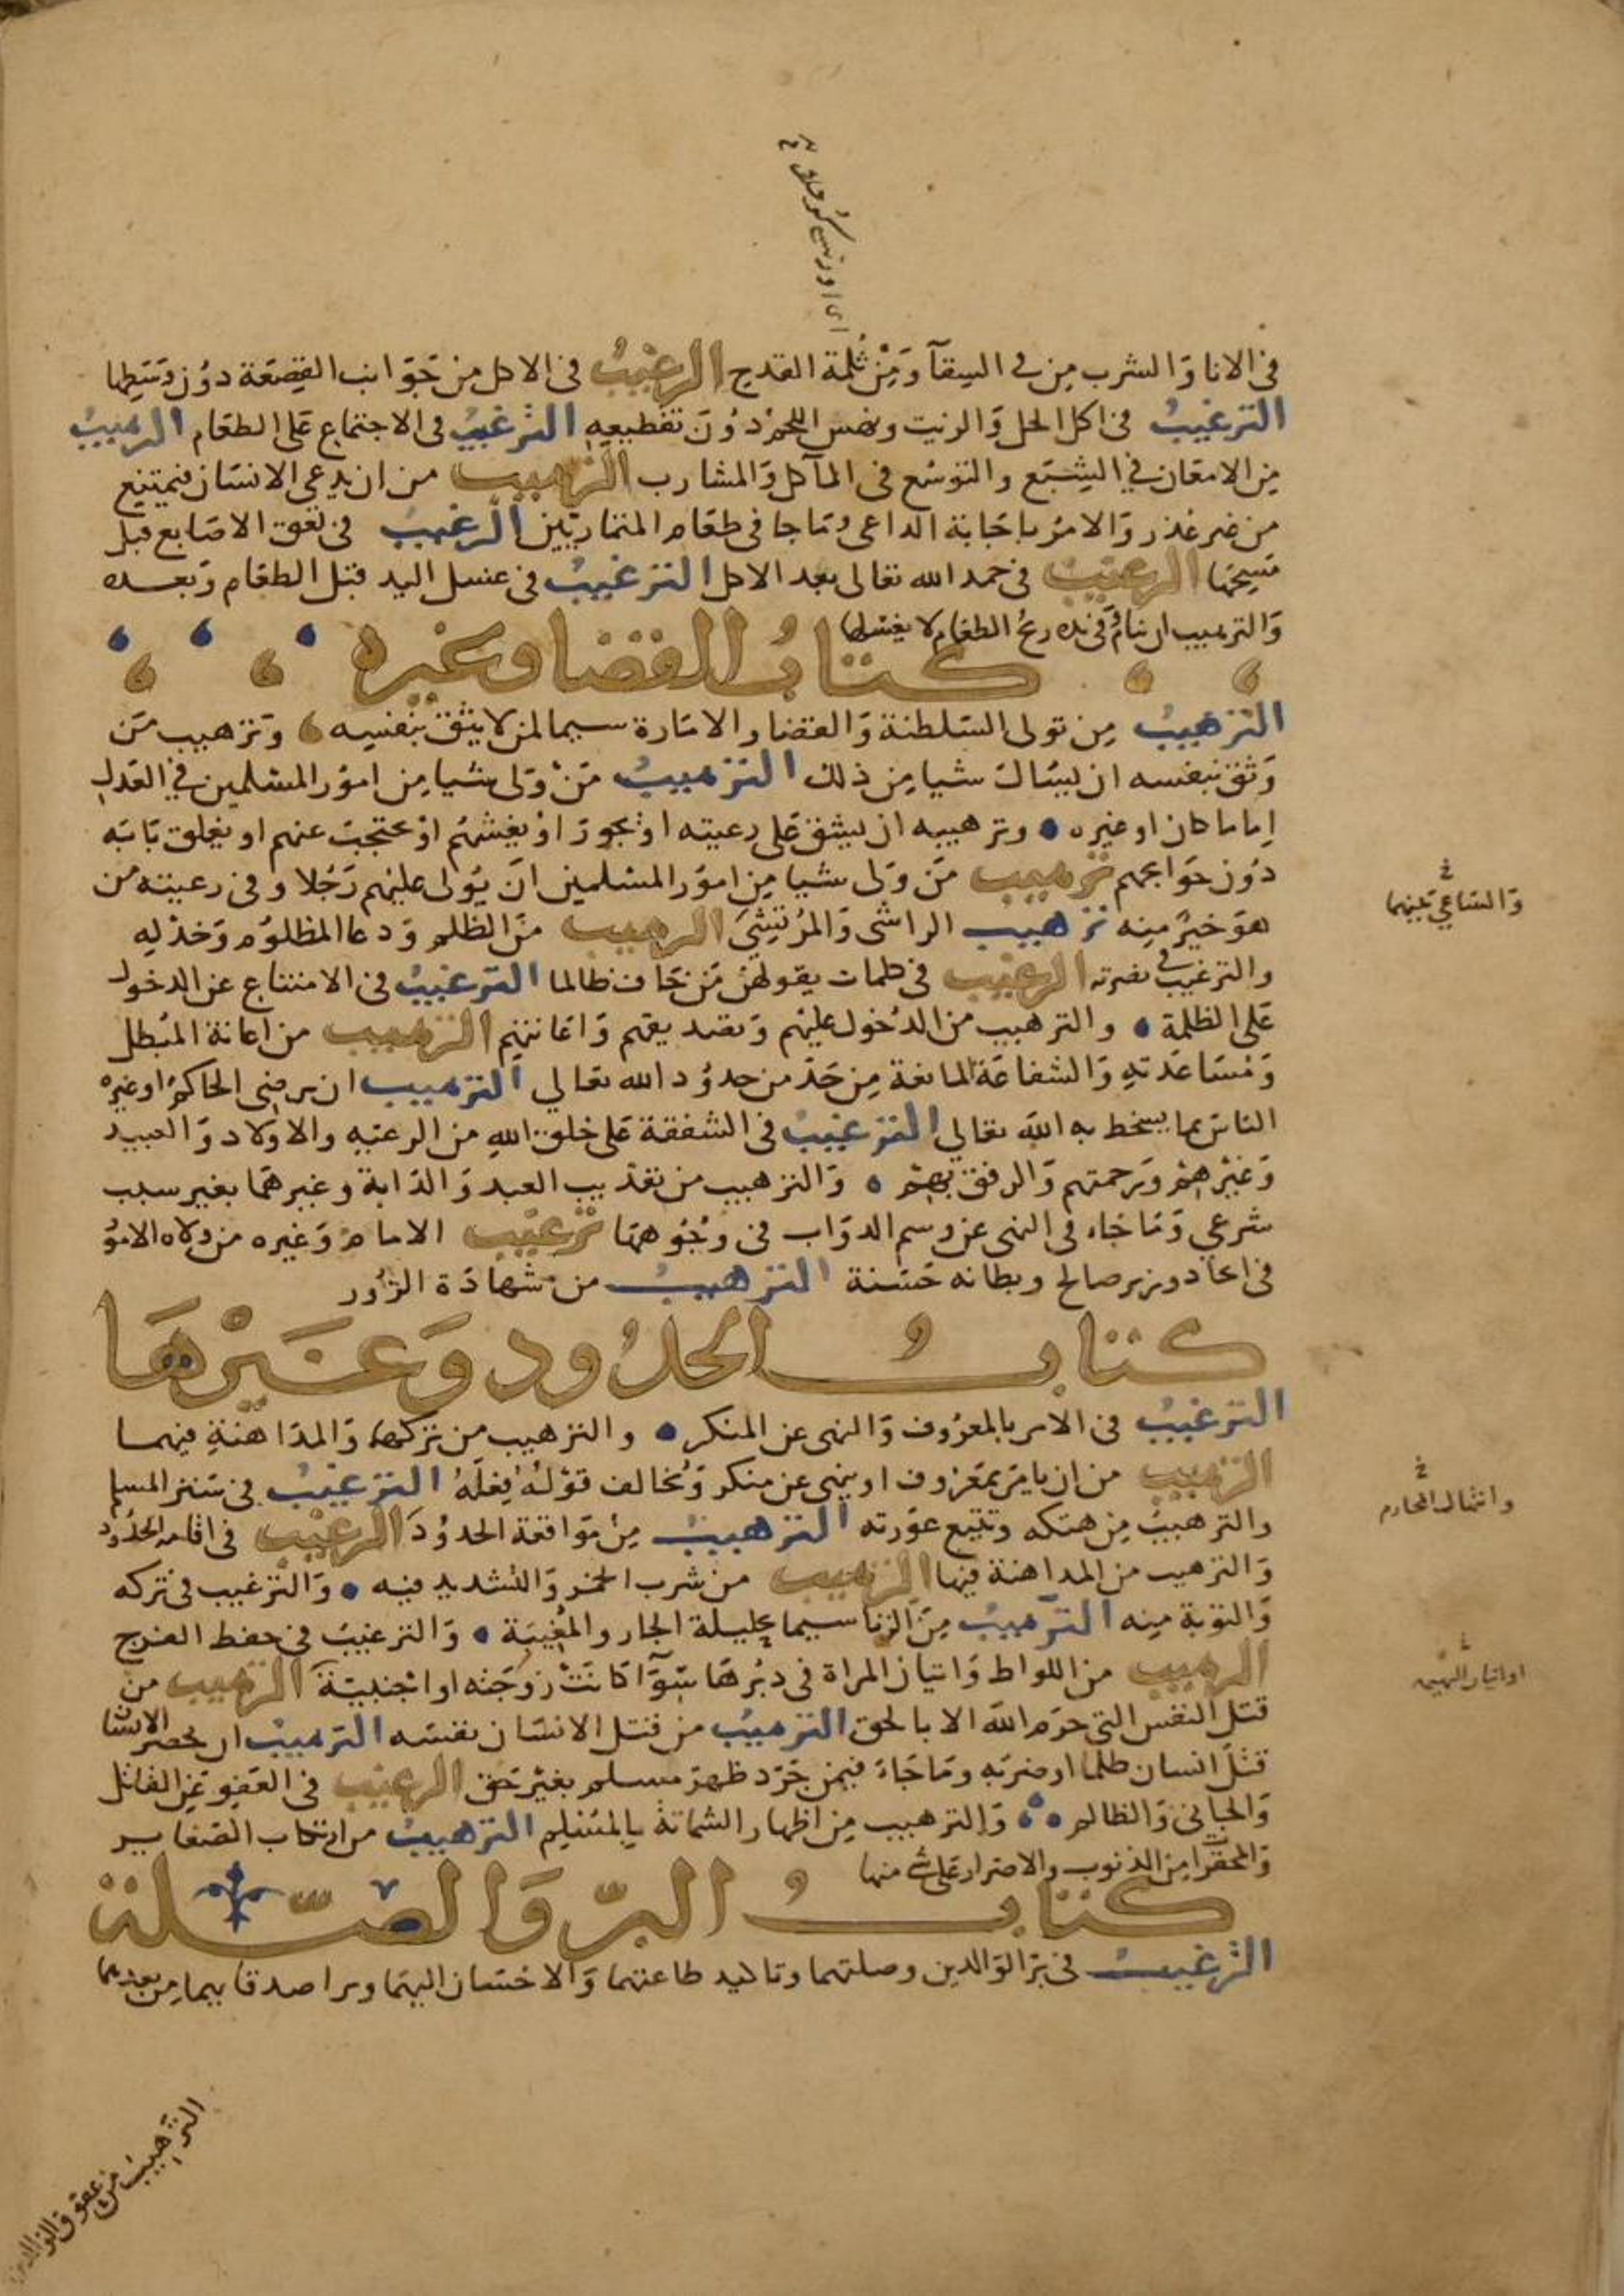 في الانا وَالشرب مِن في السِقآ وَمِنْ ثُلمة القدح الترغيبُ في الاكل من جَوَانب القِصَعَة دوُن وَسَطِها
الترغيبُ في اكل الخل وَالزيت ونهس اللحمْ دوُنَ تقطيعِهِ الترغيبُ في الاجتماع عَلى الطعَام الترهيبُ
مِن الامعَان في الشِبَع والتوسُع في المآكل وَالمشارب الترهيب من ان يدعى الانسَان فيمتنِع
من غير عُذر وَالامرُ باجَابة الداعى وَمَا جا في طعَام المتباريَين الترغيبُ في لعق الاصَابع قبل
مَسِحهَا الترغيبُ في حمد الله تعالى بعد الاكل الترغيبُ في غسل اليد قبل الطعَام وَبعده
وَالترهيب ان ينامُ وَفى يده ريحُ الطعَام لا يغسلها
كتابُ القضا وغيره
الترهيبُ مِن تولى السَلطنة وَالقضا والامَارة سيما لمن لا يثق بنفسِه وَترهيب مَن
وَثق بنفسه ان يسَال شيا مِن ذلك الترهيبُ مَنْ وَلى شيا مِن امُور المسْلمين في العَدل
اِماما كان او غيره وترهيبه ان يشق عَلى رعيته اوْ يجورَ اوْ يغشهُم اوْ يحتجبَ عنهم او يغلق بَابَه
دوُن حوَايجهم ترهيب مَن وَلى شيا مِن امُور المسْلمين انْ يُولى عليْهم رَجُلا وفى رعيته من
هوَ خيرٌ مِنه ترهيب الراشى وَالمُرتشى الترهيب منَ الظلم وَدعا المظلوُم وَخذلِه
والترغيب في نصرته الترغيب في كلمات يقولهن مَن يخَاف ظالما الترغيبُ في الامتناع عن الدخول
عَلى الظلمة والترهيب من الدُخول عليْهم وَتصديقهم وَاعَانتهم الترهيب من اعانة المُبطل
وَمُسَاعَدتهِ وَالشفاعَة المانعة مِن حَدّ من حدوُد الله تعالى الترهيب ان يرضى الحاكمُ او غيرهُ
النَاسَ بما يسخط به الله تعالى الترغيبُ في الشفقة عَلى خلق اللهِ من الرعيهِ والاولاد وَالعبيد
وَغيْرهِمْ وَرحمتهم وَالرفق بِهِمْ وَالترهيب من تعذيب العبد وَالدَابة وغيرهمَا بغير سبب
شرعي وَمَا جَاء في النهى عن وسم الدوَاب في وُجُوههَا ترغيب الامام وَغيره من ولاه الامُوُ
في اتخاذ وزير صالح وبطانه حَسَنة الترهيبُ من شهادَة الزُور
كتابُ الحدُود وَغَيْرهَا
الترغيبُ في الامر بالمعرُوف وَالنهى عن المنكر والترهيب من تركهما وَالمدَاهنةِ فيهما
الترهيب من ان يامرَ بمعرُوف او ينهى عن منكر وَيُخالف قوْلهُ فِعلهُ الترغيبُ في سَتر المسلم
والترهيبُ مِن هتكه وتتبع عوْرته الترهيبُ مِنْ مَوَاقعة الحدوُد الترغيب في اقامه الحدُود
وَالترهيب من المداهنة فيها الترهيب من شرب الخمر وَالتشديد فيه وَالترغيب في تركه
وَالتوبة مِنه الترهيبُ مِنَ الزنا سيما بحليلة الجار والمُغِيبَة وَالترغيبُ في حفظ الفرج
الترهيب من اللواط وَاتيان المراة في دبُرهَا سَوَآ كانتْ زوجَته او اجْنبيّة الترهيب من
قتل النفس التي حرم اللهُ الا بالحق الترهيبُ من قتل الانسَان نفسَه الترهيبُ ان يحضر الانسَان
قتْل انسان ظلما او ضرَبه وَمَا جَاءَ فيمن جَرّد ظهرَ مسلم بغيْر حَق الترغيب في العَفوِ عَن القاتل
وَالجاني وَالظالم وَالترهيب مِن اظهار الشماتة بِالمسْلِم الترهيبُ من ارتكاب الصَغاير
وَالمحقرات مِن الذنوب والاصرار عَلى شى منها
كتابُ البِرّ وَالصّلة
الترغيبُ في بِرّ الوَالدين وصلتهما وتاكيد طاعتهما وَالاحسَان اليهمَا وبر اصدقايهما مِن بعدهما
وَالسَاعي بَينهما
وانتهاك المحارم
او اتيان البهيمه
الترهيب من عقوق الوَالدين